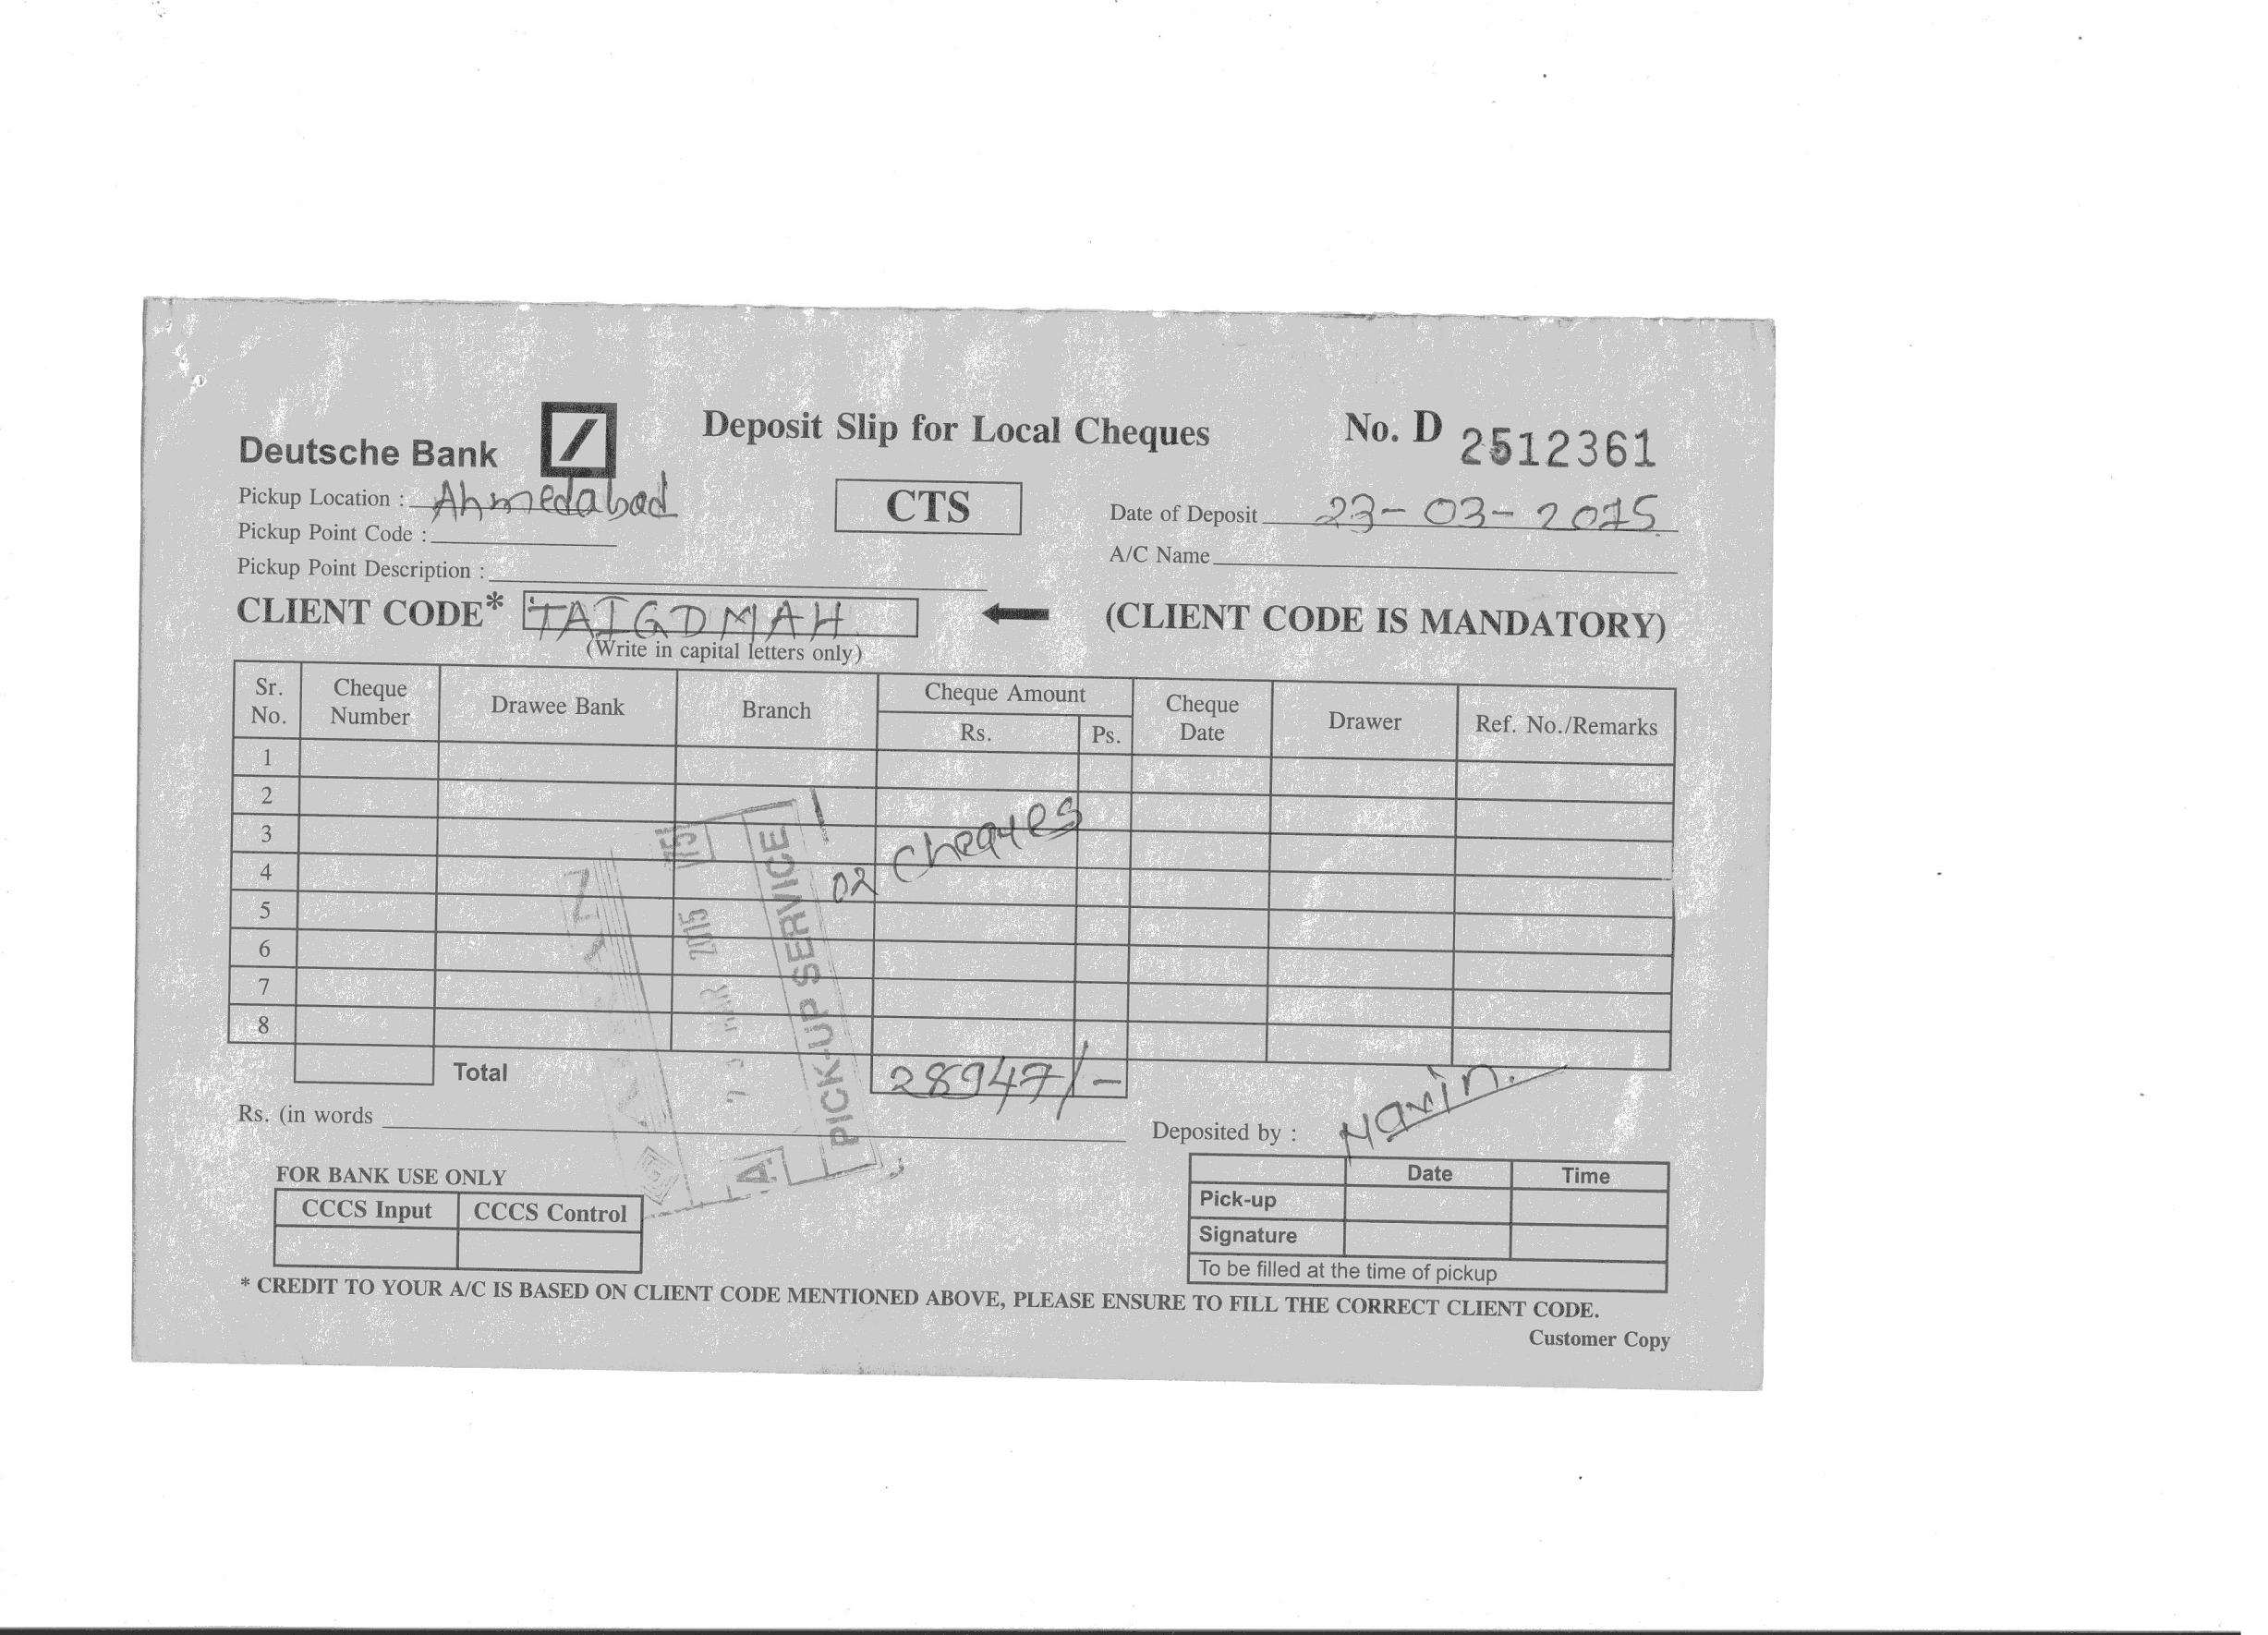 Deutsche Bank
Deposit Slip for Local Cheques
No. D 2512361
Pickup Location : Ahmedabad
CTS
Date of Deposit 23-03-2015
Pickup Point Code :
A/C Name
Pickup Point Description :
CLIENT CODE* TAIGDMAH
(CLIENT CODE IS MANDATORY)
(Write in capital letters only)
Sr. No. Cheque Number Drawee Bank Branch Cheque Amount Rs. Ps. Cheque Date Drawer Ref. No./Remarks
1
2
3
4
5
6
7
8
02 Cheques
2015
PICK-UP SERVICE
Total 28947/-
Rs. (in words
Deposited by : Navin.
FOR BANK USE ONLY
CCCS Input CCCS Control
Date Time
Pick-up
Signature
To be filled at the time of pickup
* CREDIT TO YOUR A/C IS BASED ON CLIENT CODE MENTIONED ABOVE, PLEASE ENSURE TO FILL THE CORRECT CLIENT CODE.
Customer Copy